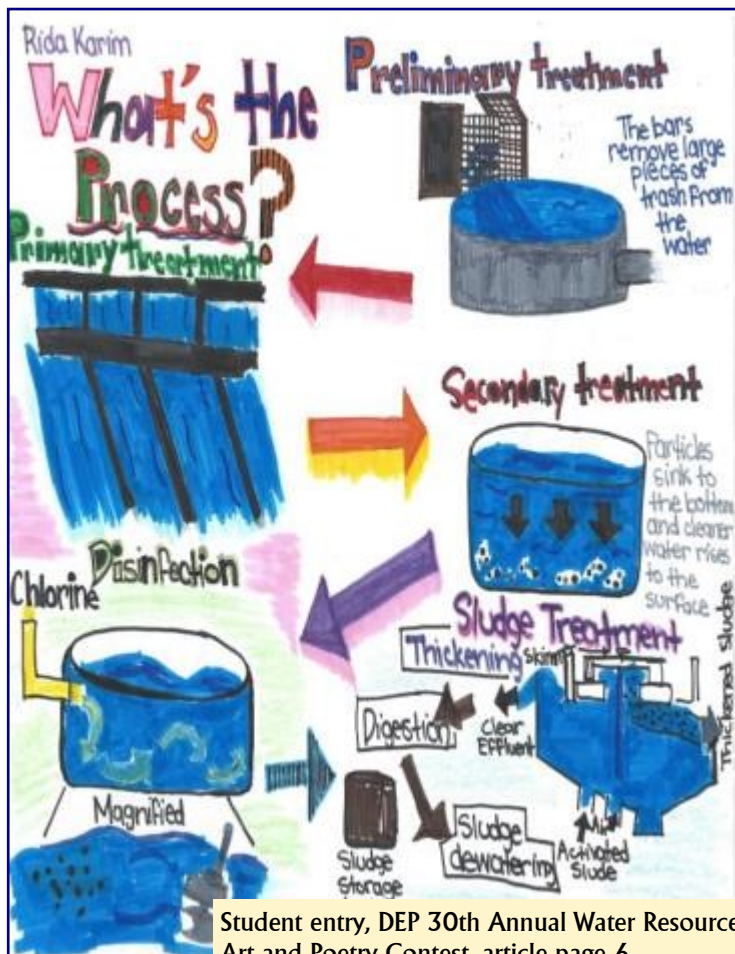 Rida Karim
What's the
Process?
Preliminary treatment
The bars
remove large
pieces of
trash from
the
water
Primary treatment
Secondary treatment
Particles
sink to
the bottom
and cleaner
water rises
to the
surface
Disinfection
Chlorine
Magnified
Sludge Treatment
Thickening
Digestion
Clear
Effluent
Thickened Sludge
Sludge
dewatering
Activated
Slude
Sludge
Storage
Student entry, DEP 30th Annual Water Resource
Art and Poetry Contest, article page 6